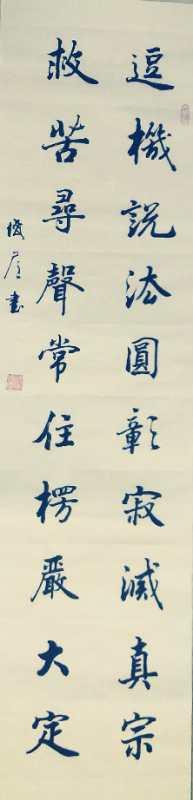 逗機說法圓彰寂滅真宗
救苦尋聲常住楞嚴大定
書